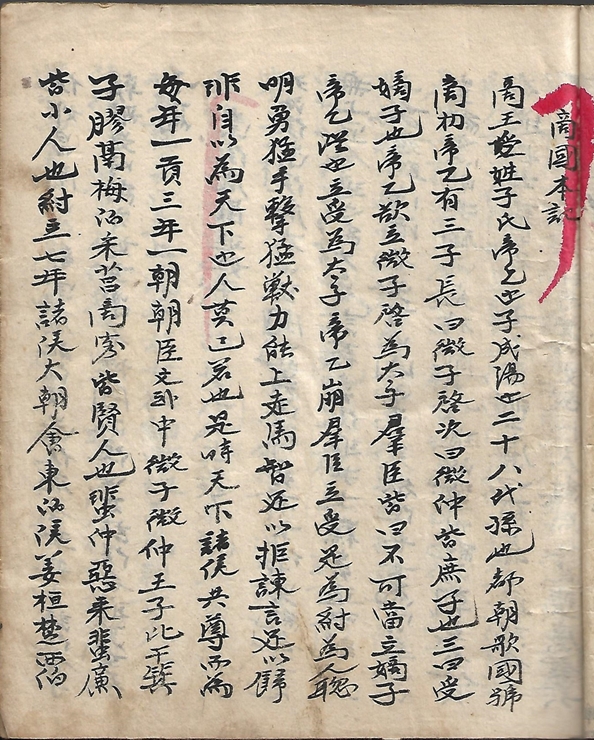 商國本記
商王受姓子氏帝乙之子成湯之二十八代孫也都朝歌國號
商初帝乙有三子長曰微子啓次曰微仲皆庶子也三曰受
嫡子也帝乙欲立微子啓為太子羣臣皆曰不可當立嫡子
帝乙從之立受為太子帝乙崩羣臣立受是為紂為人聡
明勇猛手擊猛獣力能上走馬智足以拒諫言足以餙
非自以為天下之人莫己若也是時天下諸侯共尊而為
每年一貢三年一朝朝臣文武中微子微仲王子比干箕
子膠鬲梅伯禾莒商容皆賢人也蜚仲惡来蜚廉
皆小人也紂立七年諸侯大朝會東伯侯姜桓楚西伯